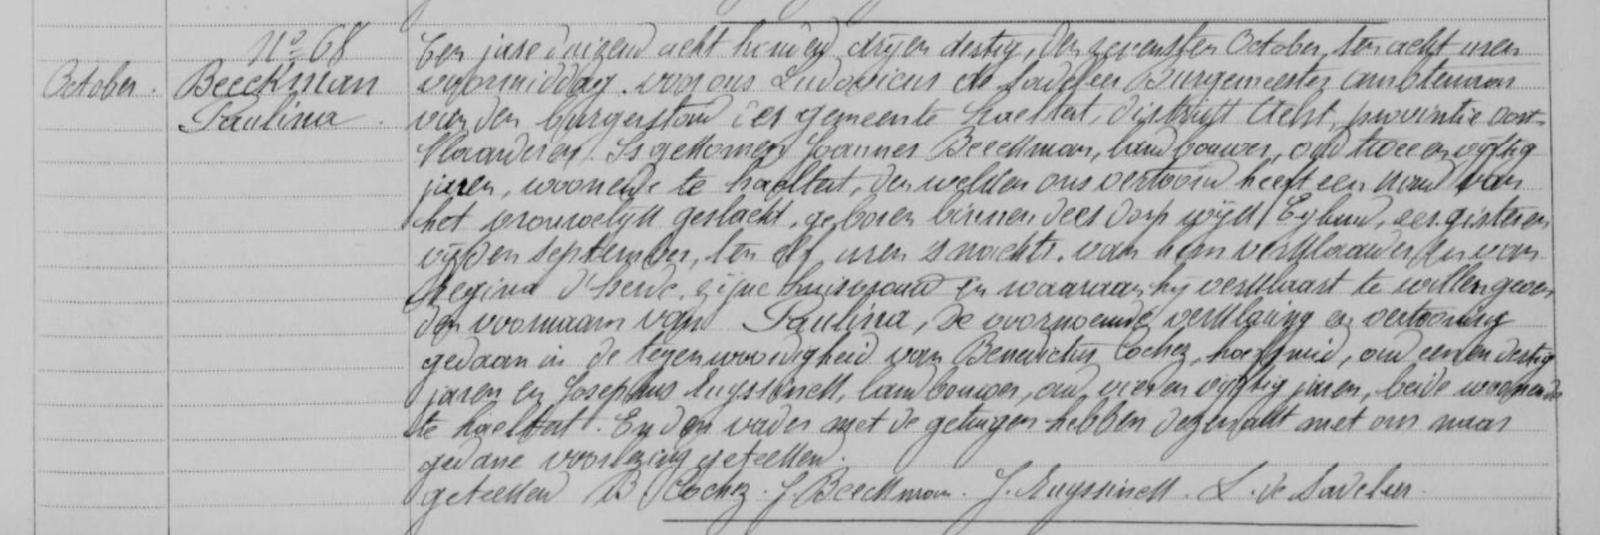 Nº 68
October.
Beeckman
Paulina.
Een jare duizend acht honderd drij en dertig, den zevensten October, ten acht uren
voormiddag, voor ons Ludovicus de Sadeleer Burgemeester ambtenaar
van den burgerstand der gemeente Haeltert, distrikt Aelst, provintie oost-
Vlaanderen. Is gekomen Joannes Beeckman, landbouwer, oud twee en vijftig
jaren, woonende te haeltert, den welken ons vertoond heeft een kind van
het vrouwelijk geslacht, geboren binnen dees dorp wijk Eyland, eergisteren
vijfden september, ten elf uren s'nachts, van hem verklaarder en van
Regina D'herde, zijne huisvrouw en waaraan hij verklaart te willen geven
den voornaam van Paulina, de voornoemde verklaring en vertooning
gedaan in de tegenwoordigheid van Benedictus Cochez, hoefsmid, oud een en dertig
jaren en Josephus Ruyssinck, landbouwer, oud vier en vijftig jaren, beide woonende
te haeltert. En den vader met de getuigen hebben deze akt met ons naar
gedane voorlezing geteekend.
geteekend B Cochez. J. Beeckman. J. Ruyssinck. L. de Sadeleer.